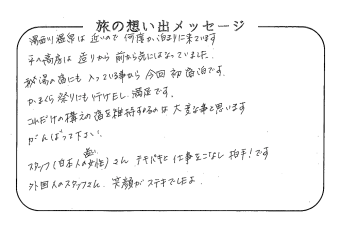 旅の想い出メッセージ
湯田川温泉は近いので何度か泊まりに来ています
造りから前から気にはなっていました。
秘湯の宿にも入っている事から今回初宿泊です。
かまくら祭りにも行けたし、満足です。
これだけの構えの宿を維持するのは大変な事と思います
がんばって下さい。
スタッフ(日本人の若い女性)さん テキパキと仕事をこなし拍手!です
外国人のスタッフさん、笑顔がステキでしたよ。